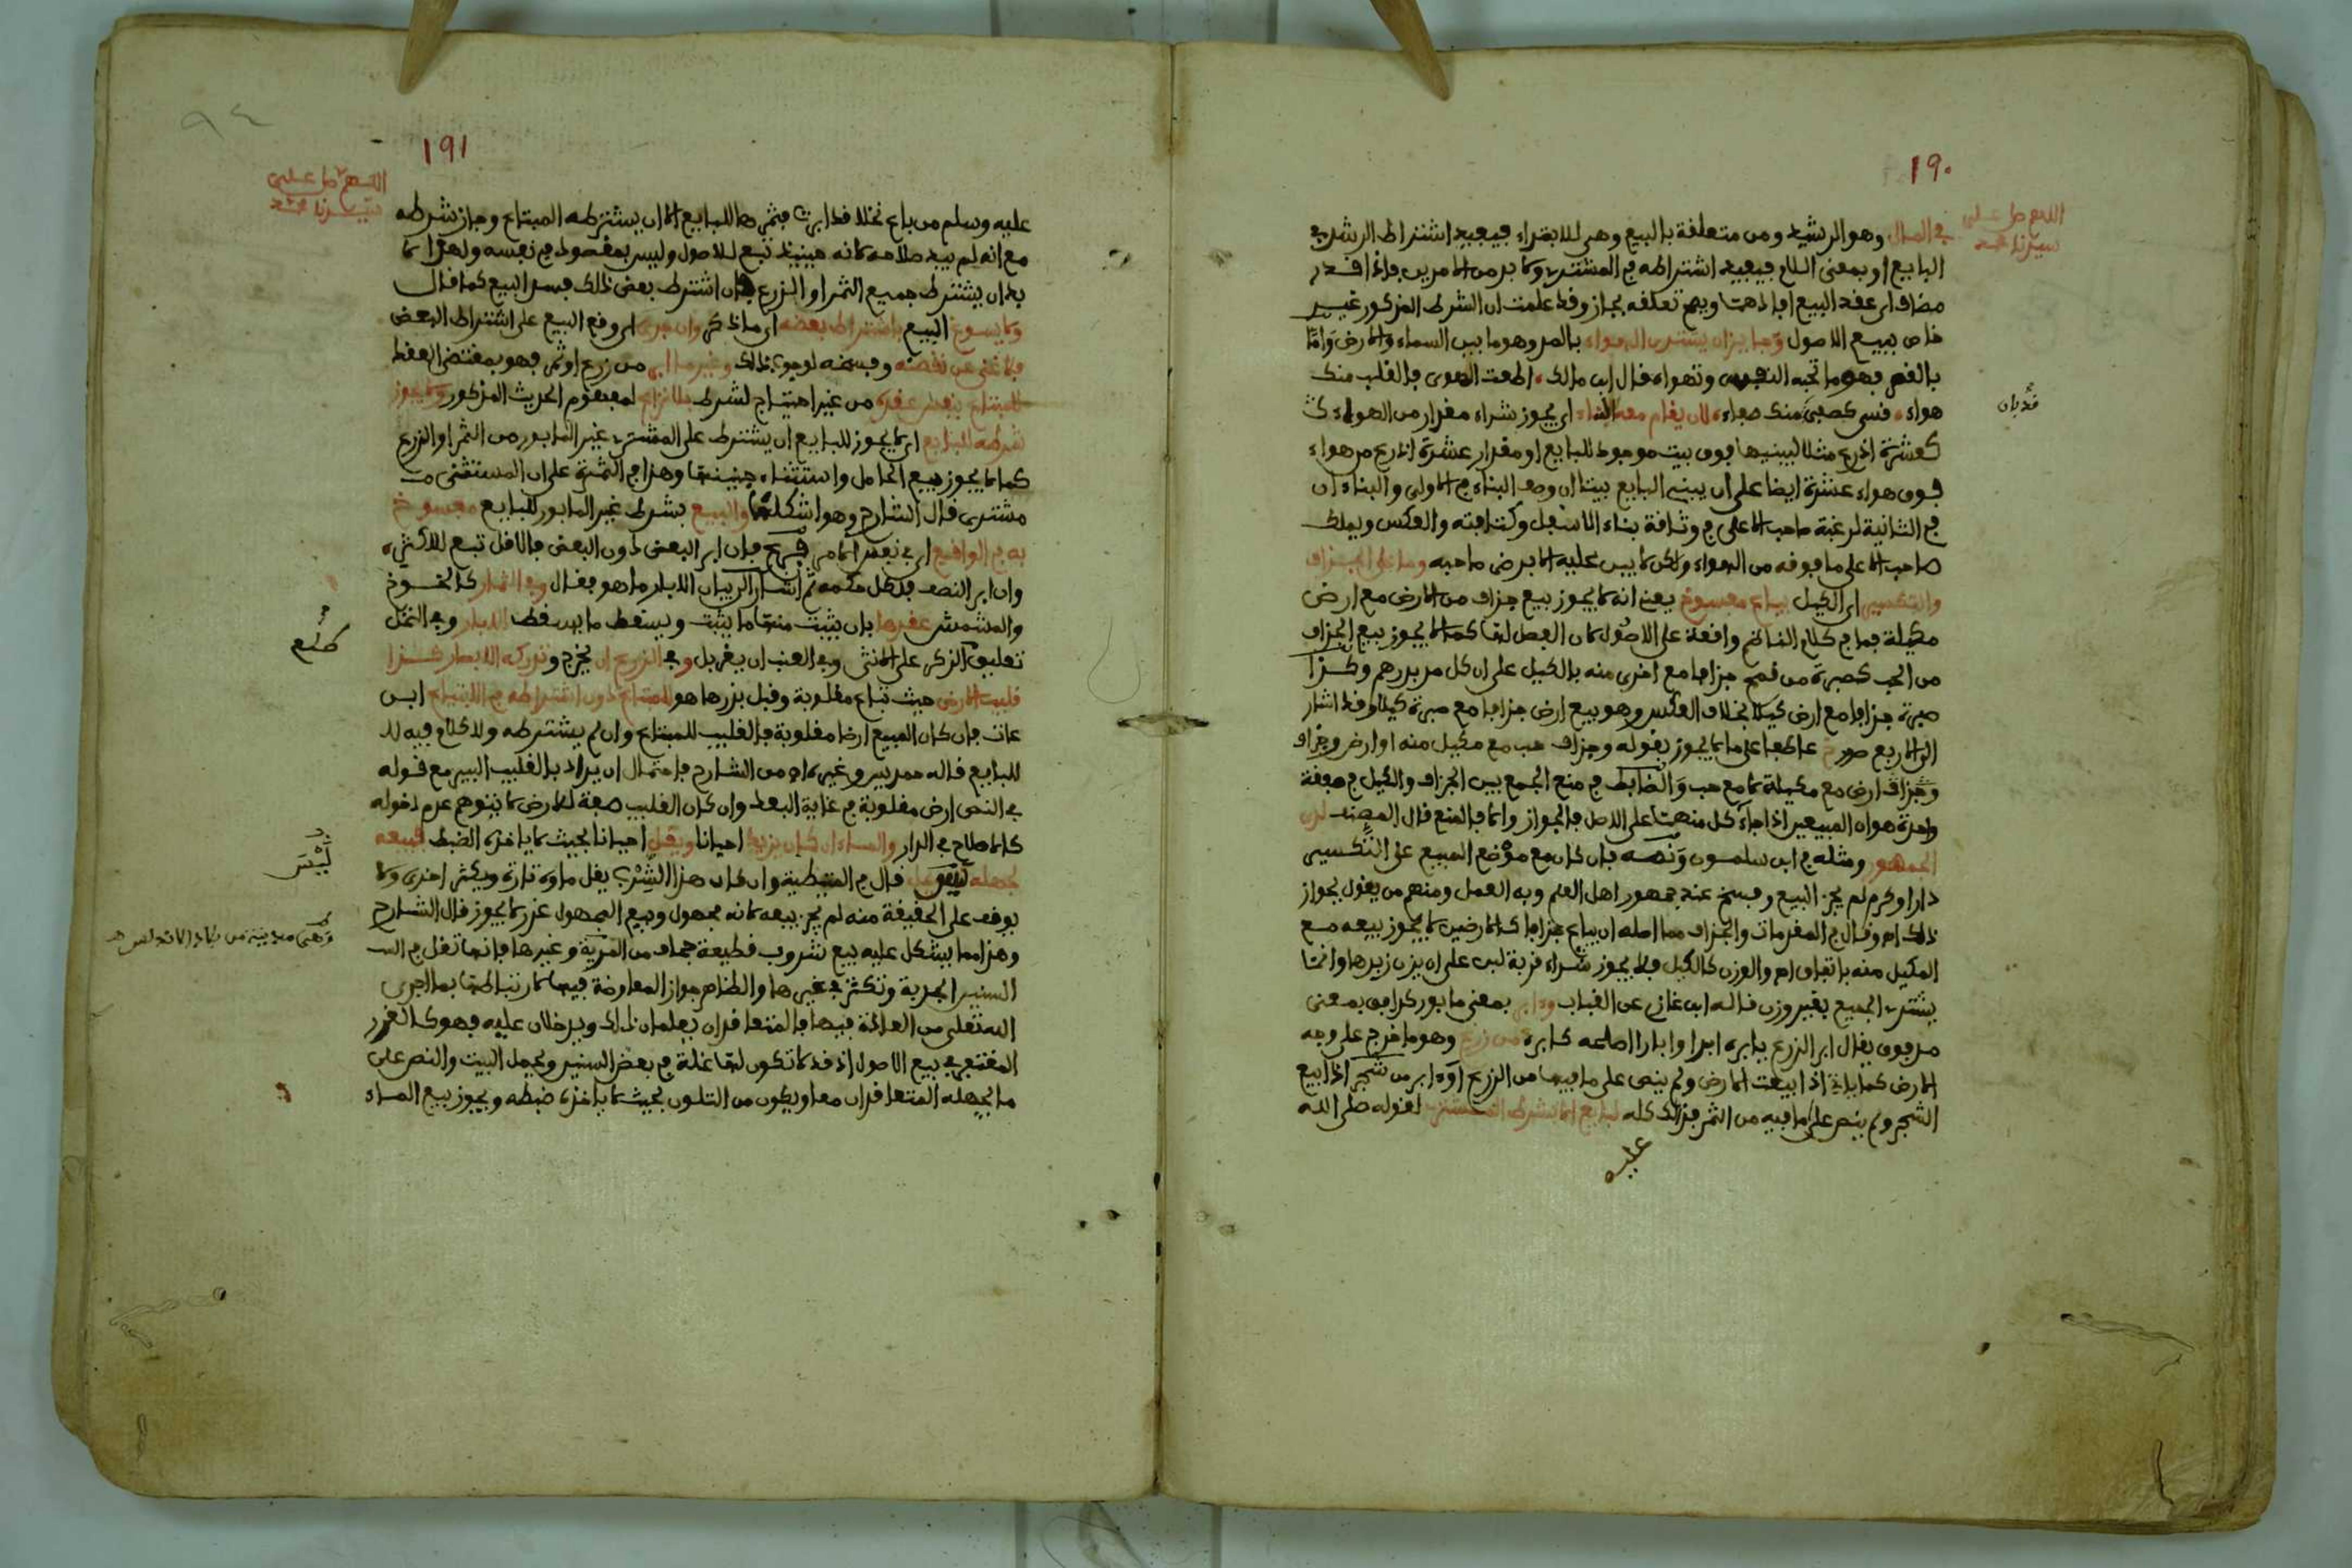 ١٩٠
اللهم صل على
سيدنا محمد
في المال وهو الرشيد ومن متعلقة بالبيع وهى للابتداء فيعيد اشتراط الرشد في
البايع او بمعنى اللام فيعيد اشتراطه في المشتري ولا بد من الامرين فاذا قدر
مضاف اى عقد البيع افادهما ويصح تعلقه بجاز وقد علمت ان الشرط المذكور غير
خاص ببيع الاصول وجايز ان يشترى الهواء بالمد وهو ما بين السماء والارض واما
بالقصر فهو ما تحبه النفس وتهواه قال ابن مالك اطعت الهوى فالقلب منك
هواء قسى كصفى منك صفاء لان يقام معه البناء اى يجوز شراء مقدار من الهواء
كعشرة اذرع مثلا ليبنيها فوق بيت موجود للبايع او مقدار عشرة اذرع من هواء
فوق هواء عشرة ايضا على ان يبنى البايع بيتا ان وصف البناء في الاولى والبناءان
في الثانية لرغبة صاحب الاعلى في وثاقة بناء الاسفل وكثافته والعكس ويملك
صاحب الاعلى ما فوقه من الهواء ولكن لا يبنى عليه الا برضى صاحبه وما على الجزاف
والتكسير اى الكيل يباع مفسوخ يعنى انه لا يجوز بيع جزاف من الارض مع ارض
مكيلة فما في كلام الناظم واقعة على الاصول لان الفصل لها كما لا يجوز بيع الجزاف
من الحب كصبرة من قمح جزافا مع اخرى منه بالكيل على ان كل مد بدرهم وكذا
صبرة جزافا مع ارض كيلا بخلاف العكس وهو بيع ارض جزافا مع صبرة كيلا وقد اشار
الى اربع صور عاطفا على ما لا يجوز بقوله وجزاف حب مع مكيل منه او ارض وجزاف
وجزاف ارض مع مكيلة لا مع حب والضابط في منع الجمع بين الجزاف والكيل في صفقة
واحدة هو ان المبيعين اذا جاء كل منهما على الاصل فالجواز والا فالمنع قال المصنف لدى
الجمهور ومثله في ابن سلمون ونصه فان كان مع موضع المبيع على التكسير
دار او كرم لم يجز البيع وفسخ عند جمهور اهل العلم وبه العمل ومنهم من يقول بجواز
ذلك اه وقال في المقدمات والجزاف مما اصله ان يباع جزافا كالارضين لا يجوز بيعه مع
المكيل منه باتفاق اه والوزن كالكيل فلا يجوز شراء قربة لبن على ان يزن زبدها وانما
يشترى الجميع بغير وزن قاله ابن غازى عن القباب وءابر بمعنى مابور كدافق بمعنى
مدفوق يقال ابر الزرع يابره ابرا وابارا اصلحه كابره من زرع وهو ما خرج على وجه
الارض كما ياتى اذا بيعت الارض ولم ينص على ما فيها من الزرع او ءابر من شجر اذا بيع
الشجر ولم ينص على ما فيه من الثمر فذلك كله لبايع الا بشرط المشترى لقوله صلى الله
عليه
١٩١
٩٤
اللهم صل على
سيدنا محمد
عليه وسلم من باع نخلا قد ابرت فثمرها للبايع الا ان يشترطه المبتاع وجاز شرطه
مع انه لم يبد صلاحه لانه حينيذ تبع للاصول وليس بمقصود في نفسه ولهذا لا
بد ان يشترط جميع الثمر او الزرع فان اشترط بعض ذلك فسد البيع كما قال
ولا يسوغ البيع باشتراط بعضه اى ما ذكر وان جرى اى وقع البيع على اشتراط البعض
فلا غنى عن نقضه وفسخه لوجوب ذلك وغير ما ابر من زرع او ثمر فهو بمقتضى العقد
للمبتاع بنفس عقده من غير احتياج لشرط بلا نزاع لمفهوم الحديث المذكور ولا يجوز
شرطه للبايع اى لا يجوز للبايع ان يشترط على المشترى غير المابور من الثمر او الزرع
كما لا يجوز بيع الحامل واستثناء جنينها وهذا في الثمرة على ان المستثنى
مشترى قال الشارح وهو اشكلهما والبيع بشرط غير المابور للبايع مفسوخ
به في الواقع اى في نفس الامر فان ابر البعض دون البعض فالاقل تبع للاكثر
وان ابر النصف فلكل حكمه ثم اشار الى بيان الابار ما هو فقال وفى الثمار كالخوخ
والمشمش عقدها بان يثبت منها ما يثبت ويسقط ما يسقط الابار وفى النخل
تعليق الذكر على الانثى وفى العنب ان يغربل وفى الزرع ان يخرج وتدركه الابصار كذا
قليب الارض حيث تباع مقلوبة وقبل بذرها هو للمبتاع دون اشتراطه في الابتياع ابن
عات فان كان المبيع ارضا مقلوبة فالقليب للمبتاع وان لم يشترطه ولا كلام فيه لا
للبايع قاله حمديس وغيره اه من الشارح فاحتمال ان يراد بالقليب البير مع قوله
في النص ارض مقلوبة في غاية البعد وان كان القليب صفة للارض لا يتوهم عدم دخوله
كالاصلاح في الدار والماء ان كان يزيد احيانا ويقل احيانا بحيث لا ياخذه الضبط فبيعه
لجهله قال في المتيطية وان كان هذا الشرب يقل ماؤه تارة ويكثر اخرى ولا
يوقف على الحقيقة منه لم يجز بيعه لانه مجهول وبيع المجهول غرر لا يجوز قال الشارح
وهذا مما يشكل عليه بيع شروب قطيعة من القرية وغيرها فانها تقل في
السنين الجدبة وتكثر في غيرها والظاهر جواز المعاوضة فيها لارتباطها بما اجرى
الله تعلى من العادة فيها فالمتعاقدان يعلمان ذلك ويدخلان عليه فهو كالغرر
المغتفر في بيع الاصول اذ قد لا تكون لها غلة في بعض السنين ويحمل البيت والنص على
ما يجهله المتعاقدان معا ويكون من التلون بحيث لا ياخذه ضبطه ويجوز بيع الماء